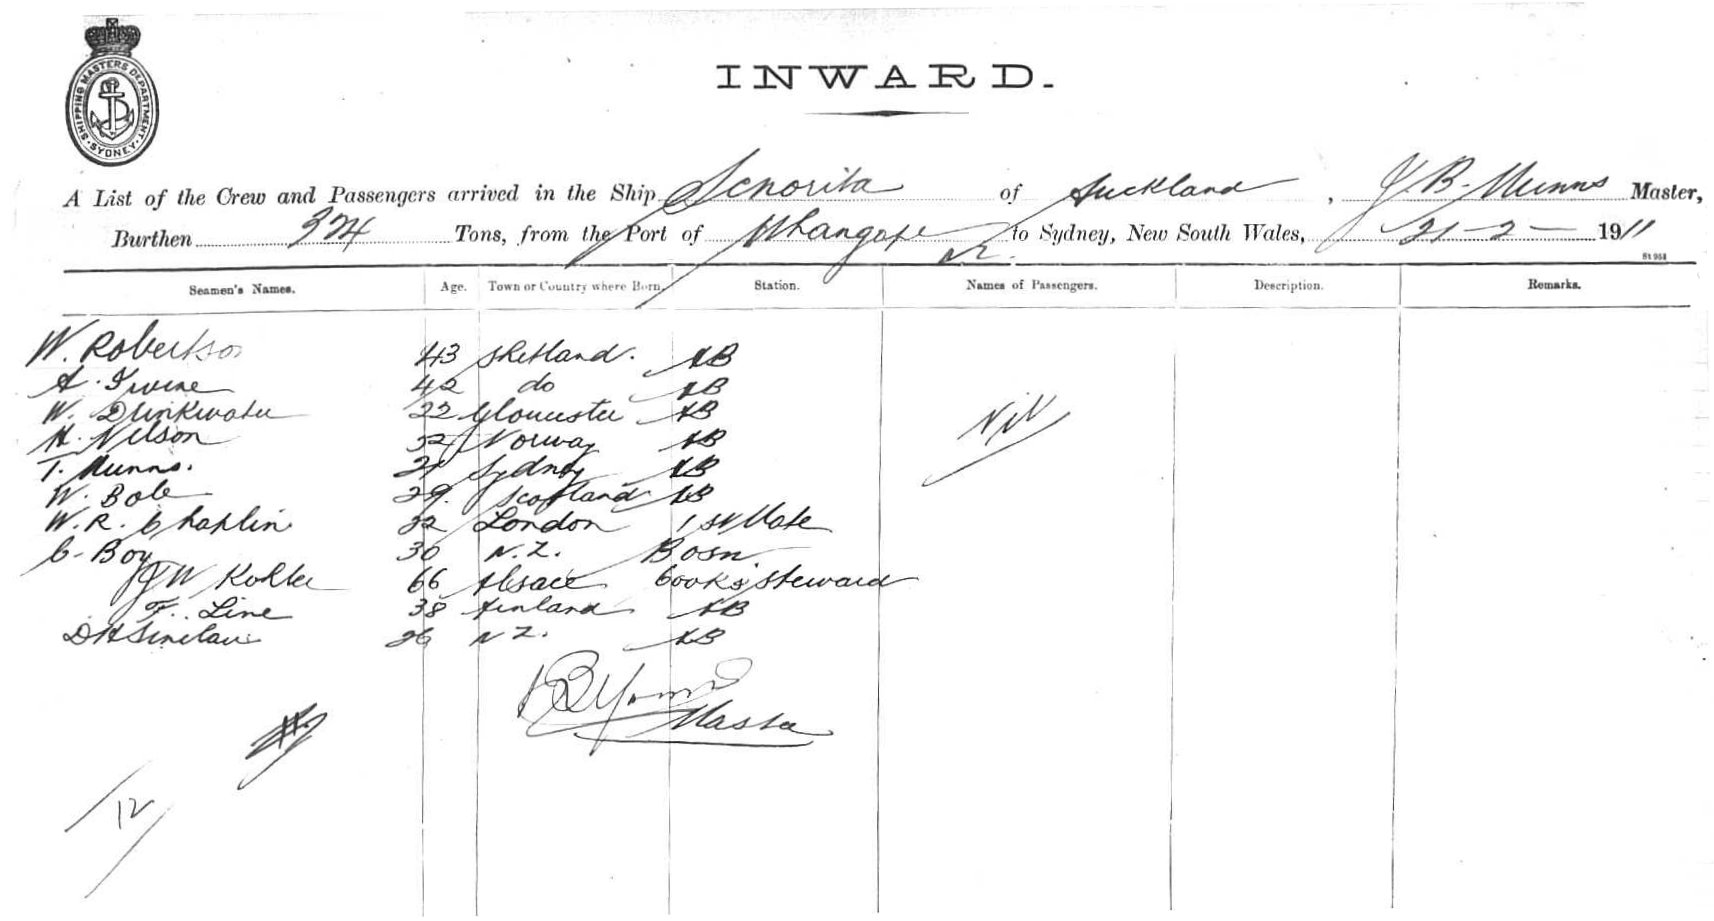 SHIPPING MASTERS DEPARTMENT · SYDNEY ·
INWARD.
A List of the Crew and Passengers arrived in the Ship Senorita of Auckland, J. B. Munns Master,
Burthen 324 Tons, from the Port of Whangape to Sydney, New South Wales, 21-2- 1911
NZ.
St 958
Seamen's Names. Age. Town or Country where Born. Station. Names of Passengers. Description. Remarks.
W. Robertson 43 Shetland. AB
A. Irvine 42 do AB
W. Drinkwater 22 Gloucester AB
Nil
H. Nilson 32 Norway AB
T. Munns. 21 Sydney AB
W. Bole 29. Scotland AB
W. R. Chaplin 32 London 1st Mate
C. Boy 30 N.Z. Bosn
J W Kohler 66 Alsace Cook & Steward
F. Line 38 Finland AB
D H Sinclair 26 NZ. AB
Master
12